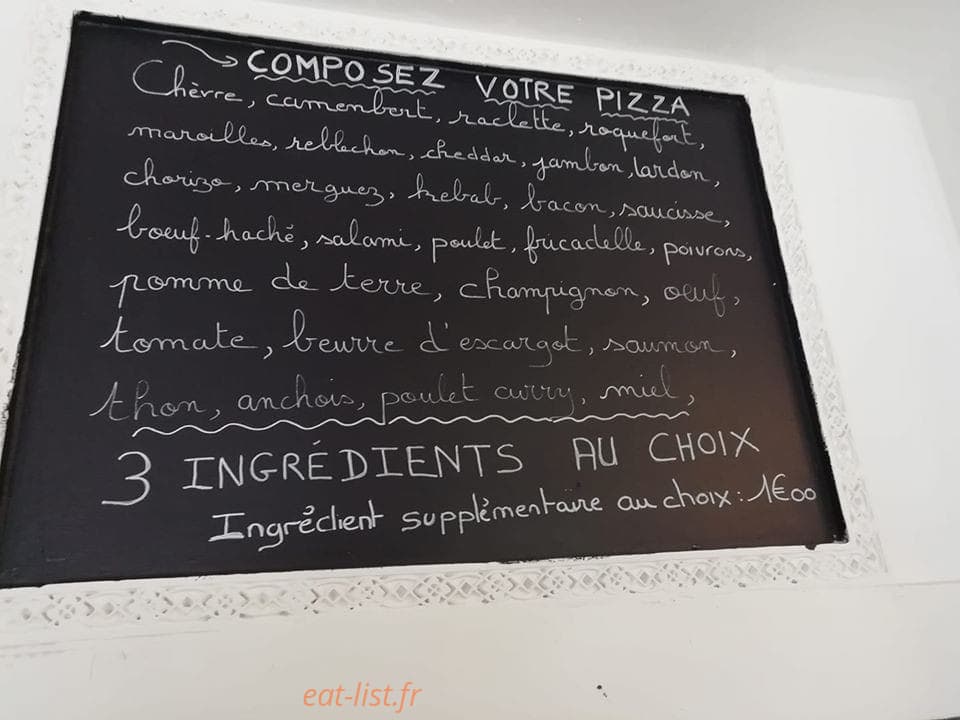 COMPOSEZ VOTRE PIZZA
Chèvre, camenbert, raclette, roquefort,
maroilles, reblochon, cheddar, jambon, lardon,
chorizo, merguez, kebab, bacon, saucisse,
boeuf-haché, salami, poulet, fricadelle, poivrons,
pomme de terre, champignon, oeuf,
tomate, beurre d'escargot, saumon,
thon, anchois, poulet curry, miel,
3 INGRÉDIENTS AU CHOIX
Ingrédient supplémentaire au choix : 1€00
eat-list.fr